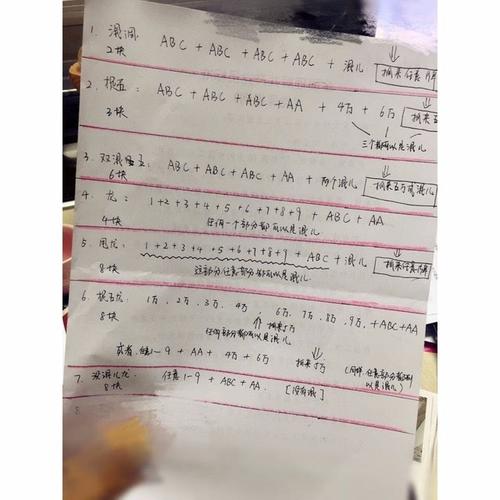 1. 混洞
2块
ABC + ABC + ABC + ABC + 混儿
摘来任意
2. 捉五:
3块
ABC + ABC + ABC + AA + 4万 + 6万
摘来五
三个都可以是混儿
3. 双混五:
6块
ABC + ABC + ABC + AA + 两个混儿
摘来五万或混儿
4. 龙:
4块
1+2+3+4+5+6+7+8+9 + ABC + AA
任何一个部分都可以是混儿
5. 龙:
8块
1+2+3+4+5+6+7+8+9 + ABC + 混儿
摘来任意
这部分任意部分都可以是混儿
6. 捉五龙:
8块
1万, 2万, 3万, 4万 6万, 7万, 8万, 9万, +ABC+AA
摘来5万
任何部分都可以是混儿
或者, 1-9 + AA + 4万 + 6万
摘来5万
(同样任意部分都可以是混儿)
7. 没混儿龙:
8块
任意1-9 + ABC + AA [没有混]
8